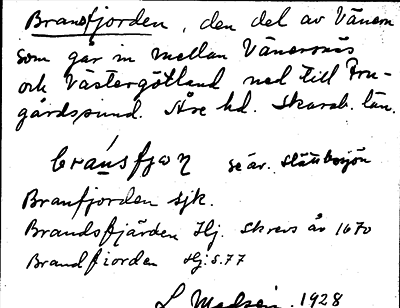 Bransfjorden, den del av Vänern
som går in mellan Vänersnäs
och Västergötland ned till Fru-
gårdssund. Åse hd. Skarab. län.
bránsfjən se äv. Slättborjön
Branfjorden sjk.
Brandsfjärden Hj. skrevs år 1670
Brandfiorden Hj. S. 77
L. Madsén, 1928